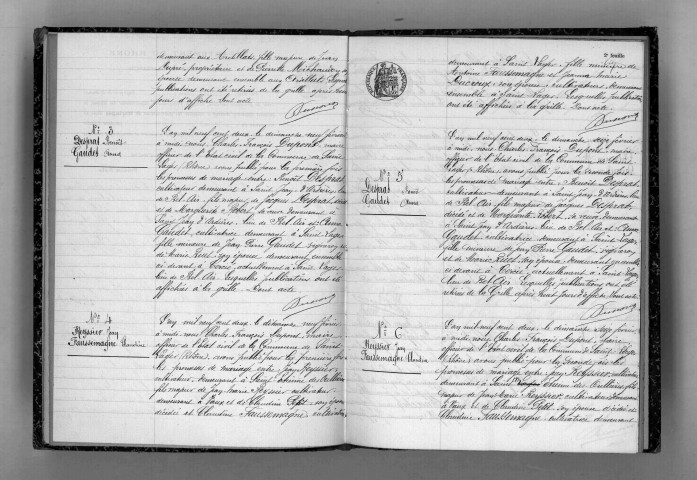 demeurant aux Ardillats, fille majeure de Jean
propriétaire et de Pierrette Michaudon
épouse demeurant ensemble aux Ardillats
publications ont été extraites de la grille après
jours d'affiche Dont acte
Dumont
N° 3
Desprat Benoît
Gaudet Anna
L'an mil neuf cent deux le dimanche neuf février
à midi, nous Charles François Dupont maire
officier de l'état civil de la Commune de Saint
Lager, Rhône, avons publié pour la première fois
les promesses de mariage entre Benoît Desprat
cultivateur demeurant à Saint Jean d'Ardières, lieu
de Bel Air, fils majeur de Jacques Desprat, décédé
et de Marguerite Robert, sa veuve demeurant à
Saint Jean d'Ardières, lieu de Bel Air et Anna
Gaudet, cultivatrice demeurant à Saint Lager
fille mineure de Jean Pierre Gaudet
de Marie son épouse demeurant ensemble
ci devant à Cercié actuellement à Saint Lager
lieu de Bel Air. Lesquelles publications ont été
affichées à la grille Dont acte
N° 4
Reyssier Jean
Faussemagne Claudine
L'an mil neuf cent deux le dimanche neuf février
à midi nous Charles François Dupont, maire
officier de l'état civil de la Commune de Saint
Lager (Rhône), avons publié pour la première fois
les promesses de mariage entre Jean Reyssier
cultivateur, demeurant à Saint Etienne des Oullières
fils majeur de Jean Marie Reyssier cultivateur
demeurant à Vaux et de Claudine Petit, son épouse
décédée et Claudine Faussemagne, cultivatrice
2e feuille
demeurant à Saint Lager, fille mineure de
Antoine Faussemagne et Jeanne Marie
son épouse, cultivateurs, demeurant
ensemble à Saint Lager. Lesquelles publications
ont été affichées à la grille. Dont acte
N° 5
Desprat Benoît
Gaudet Anna
L'an mil neuf cent deux, le dimanche seize février
à midi, nous Charles François Dupont, maire
officier de l'état civil de la Commune de Saint
Lager (Rhône) avons publié pour la seconde fois
les promesses de mariage entre Benoît Desprat,
cultivateur demeurant à Saint Jean d'Ardières, lieu
de Bel Air fils majeur de Jacques Desprat,
décédé et de Marguerite Robert, sa veuve demeurant
à Saint Jean d'Ardières, lieu de Bel Air et Anna
Gaudet, cultivatrice demeurant à Saint Lager
fille mineure de Jean Pierre Gaudet
et de Marie son épouse, demeurant ensemble
ci devant à Cercié actuellement à Saint Lager
lieu de Bel Air. Lesquelles publications ont été
extraites de la Grille, après huit jours d'affiche. Dont acte
N° 6
Reyssier Jean
Faussemagne Claudine
L'an mil neuf cent deux, le dimanche seize février
à midi, nous Charles François Dupont, maire
officier de l'état civil de la Commune de Saint Lager
(Rhône) avons publié pour la seconde fois les
promesses de mariage entre Jean Reyssier, cultivateur
demeurant à Saint Etienne des Oullières, fils
majeur de Jean Marie Reyssier, cultivateur demeurant
à Vaux et de Claudine Petit, son épouse décédée et
Claudine Faussemagne, cultivatrice demeurant